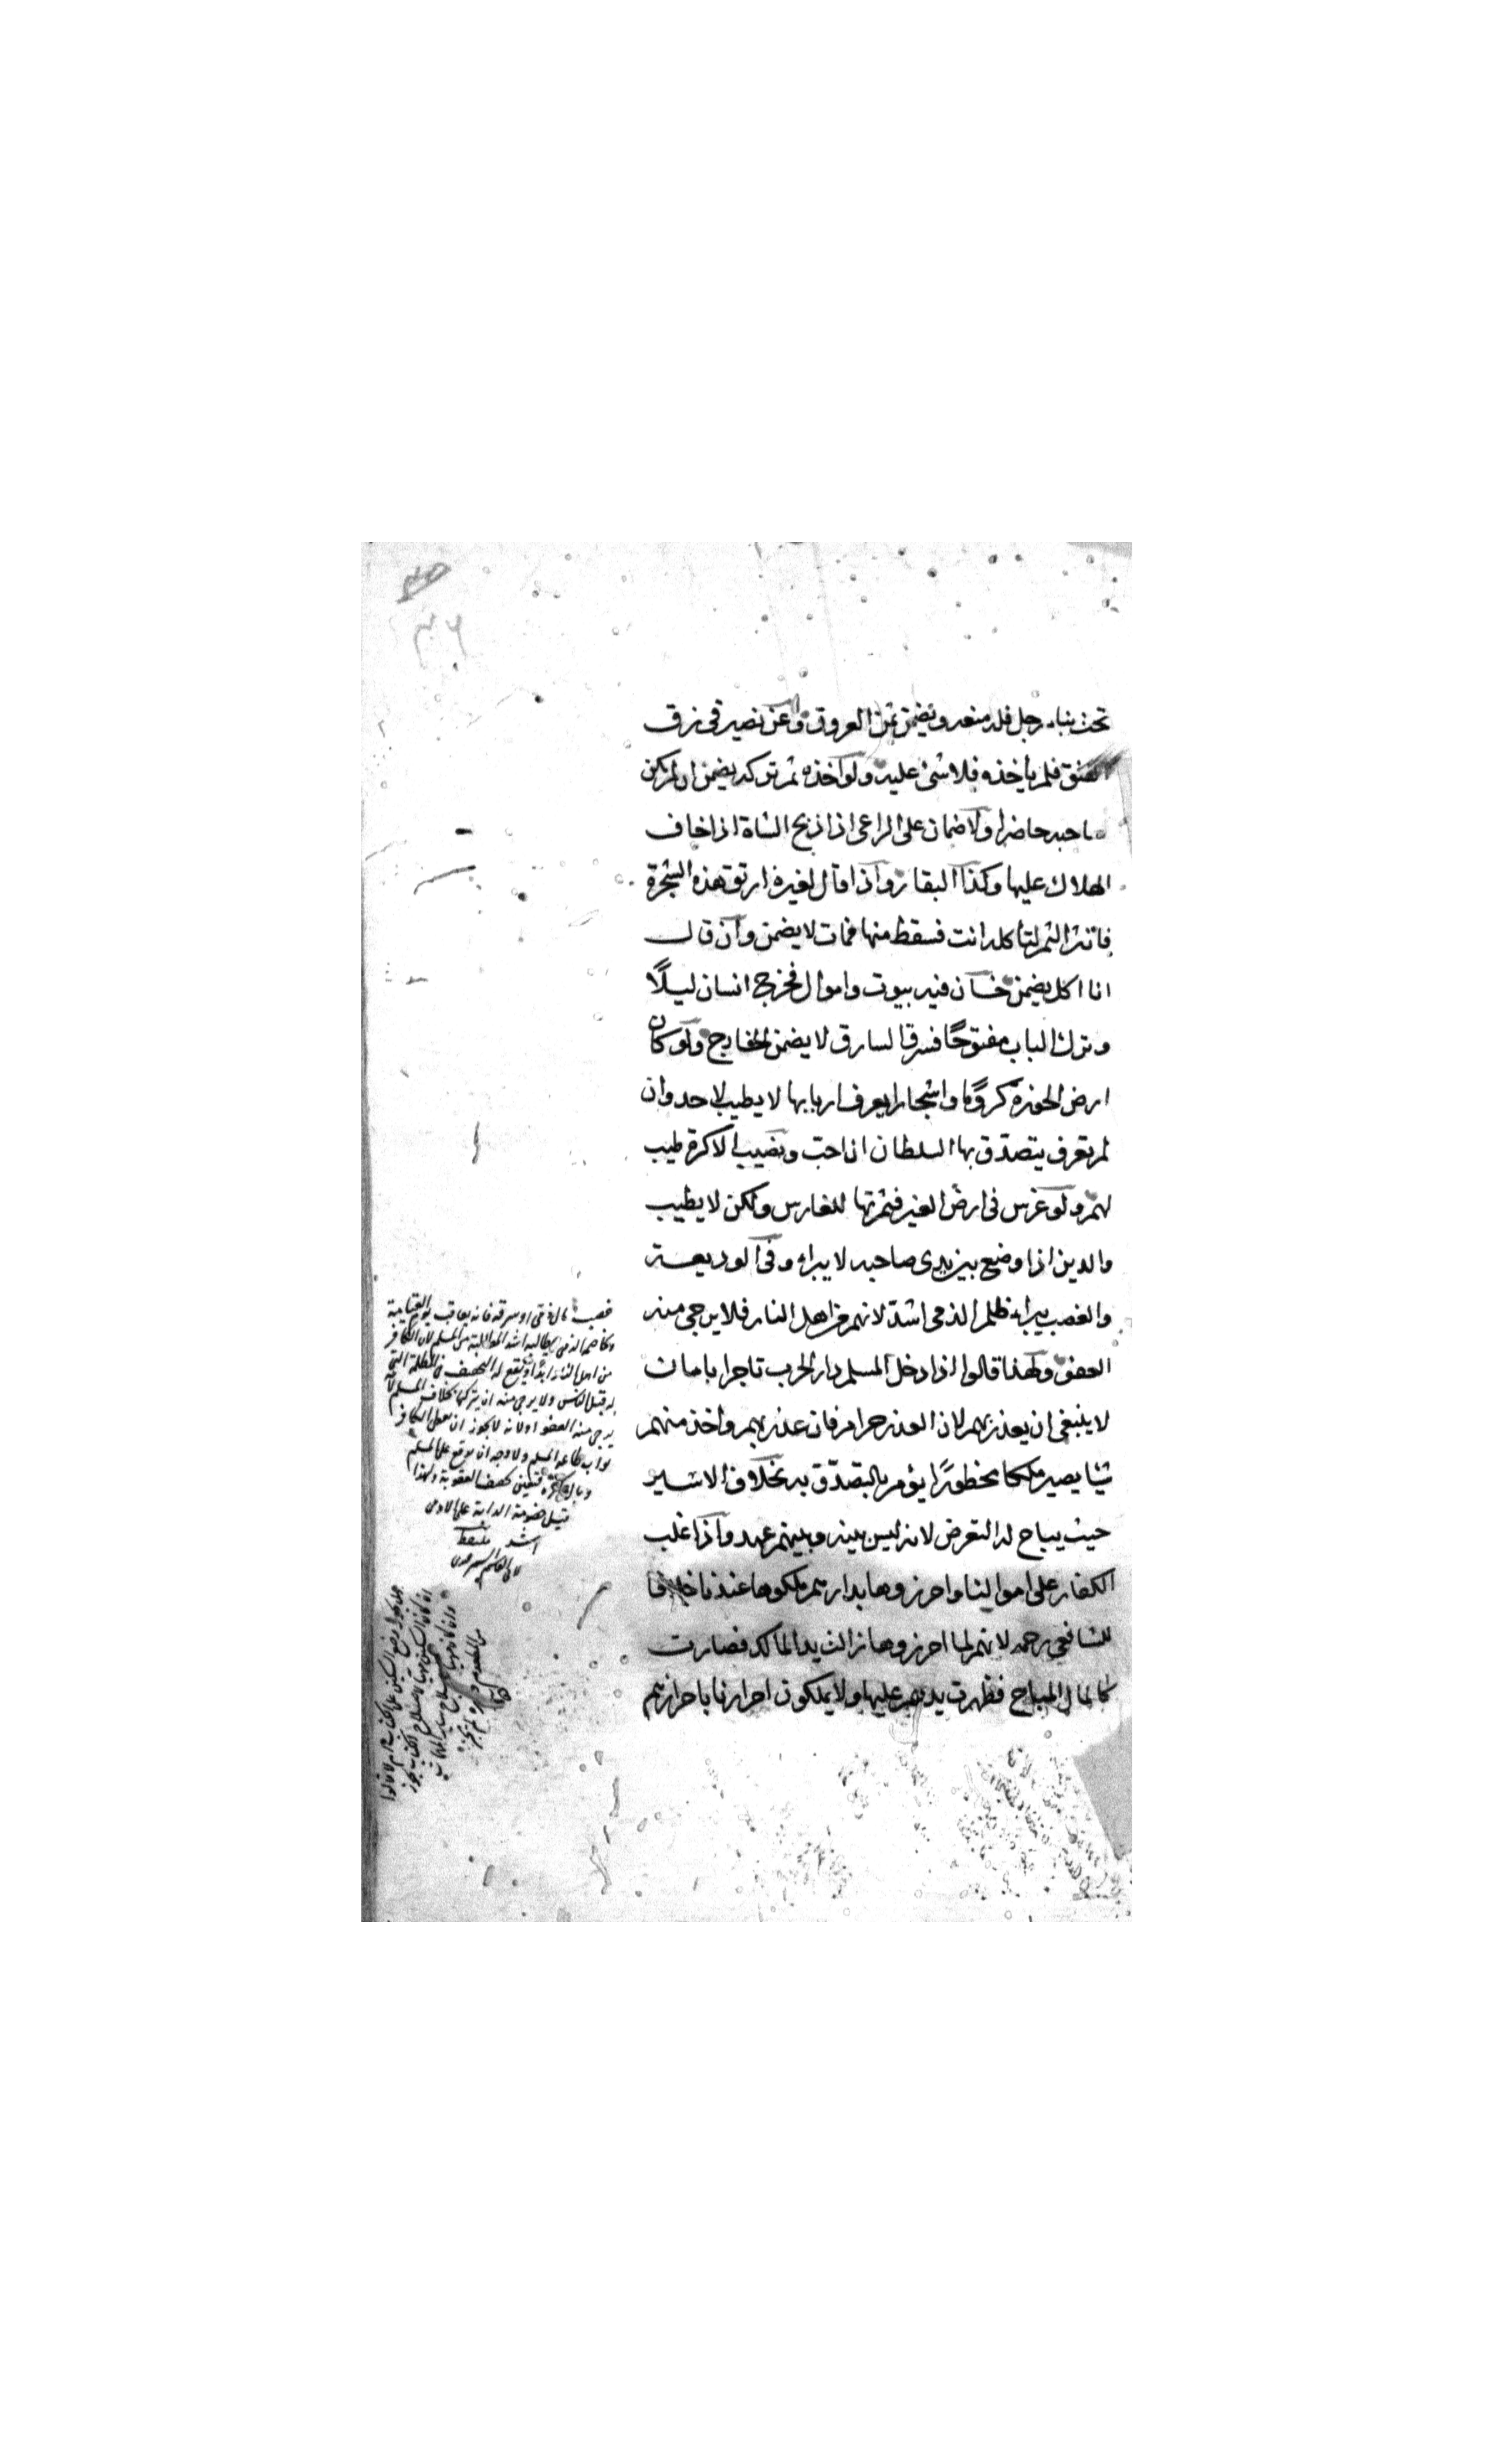 تحت بناء رجل فله منعه ويضمن ثمن العروق وعن نصير في زق
انشق فلم يأخذه فلا شئ عليه ولو اخذه ثم تركه يضمن ان لم يكن
صاحبه حاضرا ولا ضمان على الراعى اذا ذبح الشاة اذا خاف
الهلاك عليها وكذا البقار واذا قال لغيره ارتق هذه الشجرة
فانثر الثمر لتأكله انت فسقط منها فمات لا يضمن وان قال
انا اكل يضمن خان فيه بيوت واموال فخرج انسان ليلًا
وترك الباب مفتوحًا فسرق السارق لا يضمن الخارج ولو كان
ارض الحوزة كرومًا واشجارا يعرف اربابها لا يطيب لاحد وان
لم تعرف يتصدّق بها السلطان ان احب ونصيب الاكرة طيب
لهم ولو غرس فى ارض الغير فثمرتها للغارس ولكن لا يطيب
والدين اذا وضع بين يدى صاحبه لا يبراء وفى الوديعة
والغصب يبراء ظلم الذمى اشدّ لانهم من اهل النار فلا يرجى منه
العفو ولهذا قالوا اذا دخل المسلم دار الحرب تاجرا بامان
لا ينبغى ان يغدر بهم لان الغدر حرام فان غدر بهم واخذ منهم
شيئا يصير ملكا محظورًا يؤمر بالتصدّق به بخلاف الاسير
حيث يباح له التعرض لانه ليس بينه وبينهم عهد واذا غلب
الكفار على اموالينا واحرزوها بدارهم ملكوها عندنا خلافا
للشافعي رحمه لانهم لما احرزوها زالت يد المالك فصارت
كالمال المباح فظهرت يدهم عليها ولا يملكون احرارنا باحرازهم
غصب مال ذمى او سرقه فانه يعاقب يوم القيامة
من المسلم لان الكافر
من اهل النار ابدا ويقع له التخفيف فى المظلمة التى
له قبل الناس ولا يرجى منه ان يتركها بخلاف المسلم لانه
يرجى منه العفو ولانه لا يجوز ان يعطى الكافر
ثواب طاعة المسلم ولا وجه ان يوضع على المسلم
وبال كفره فتعين العقوبة ولهذا
قيل خصومة الدابة على الادمى
اشد ملتقط